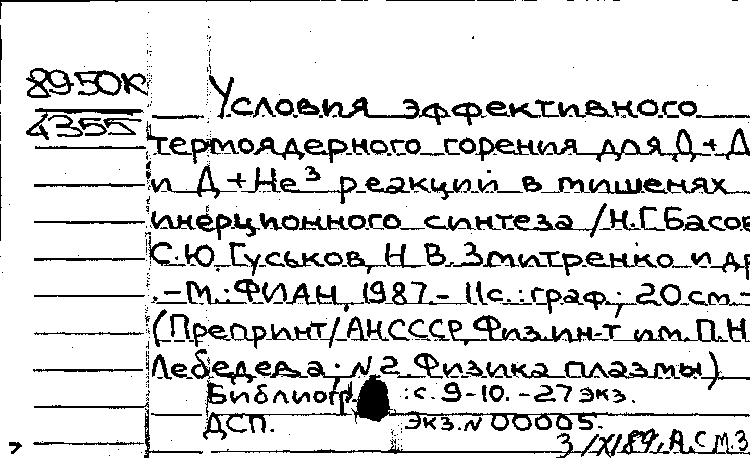 8950К
4355
Условия эффективного
термоядерного горения для Д+Д
и Д+Не³ реакций в мишенях
инерционного синтеза /Н.Г.Басов
С.Ю.Гуськов, Н.В.Змитренко и др
.-М.: ФИАН, 1987.- 11с.: граф.; 20см.-
(Препринт/АНСССР, Физ.ин-т им.П.Н
Лебедева; №2. Физика плазмы)
Библиогр.: с.9-10.-27экз.
ДСП. Экз.№00005.
3/XI89,А,С М.З